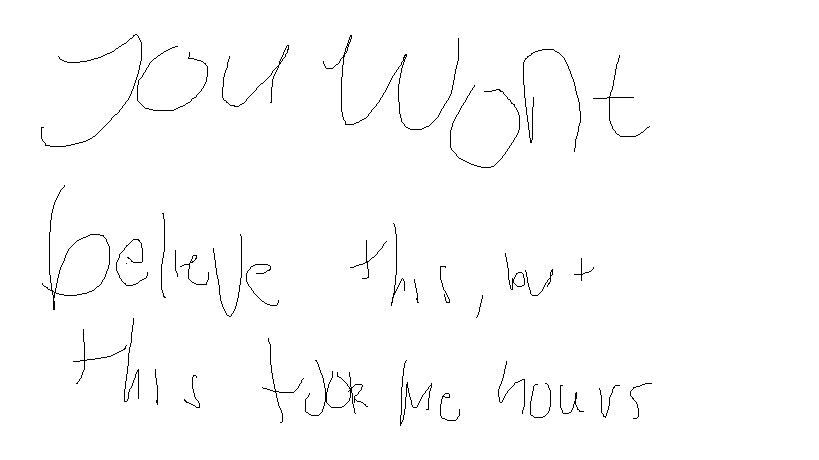 you wont
believe this, but
this took me hours